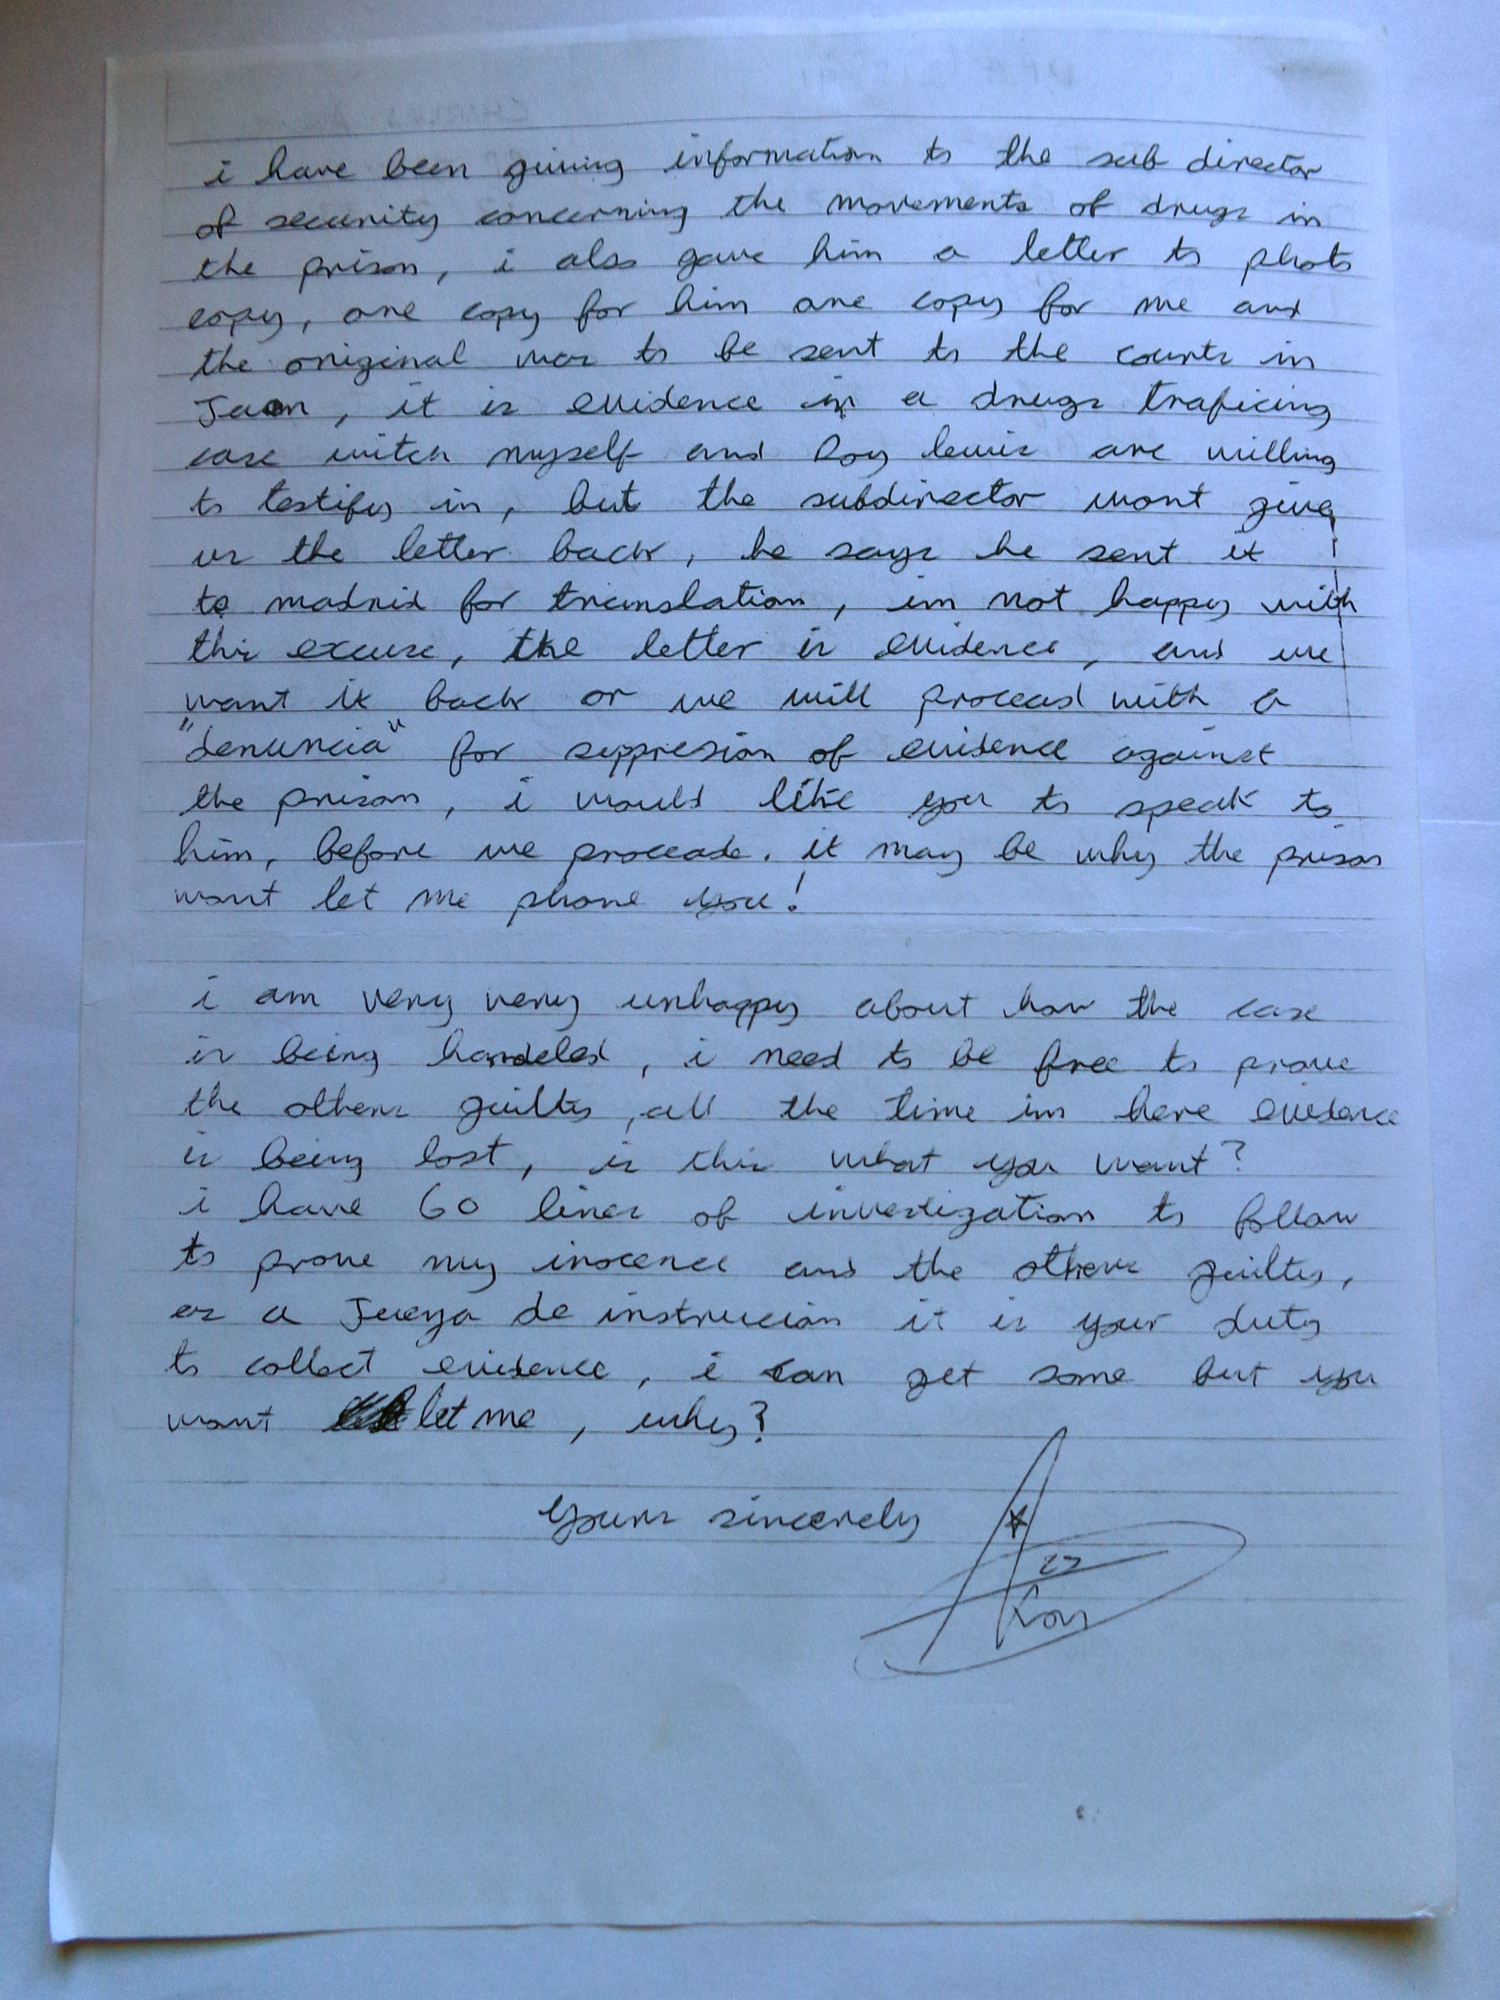 i have been giving information to the sub director
of security concerning the movements of drugs in
the prison, i also gave him a letter to photo
copy, one copy for him one copy for me and
the original was to be sent to the courts in
Jaen, it is evidence in a drugs traficing
case witch myself and Roy lewis are willing
to testify in, but the subdirector wont give
us the letter back, he says he sent it
to madrid for translation, im not happy with
this excuse, the letter is evidence, and we
want it back or we will proceed with a
"denuncia" for suppresion of evidence against
the prison, i would like you to speak to
him, before we proceade. it may be why the prison
wont let me phone you!
i am very very unhappy about how the case
is being handeled, i need to be free to prove
the others guilty, all the time im here evidence
is being lost, is this what you want?
i have 60 lines of investigation to follow
to prove my inocence and the others guilty,
as a Jueza de instrucion it is your duty
to collect evidence, i can get some but you
wont let me, why?
Yours sincerely